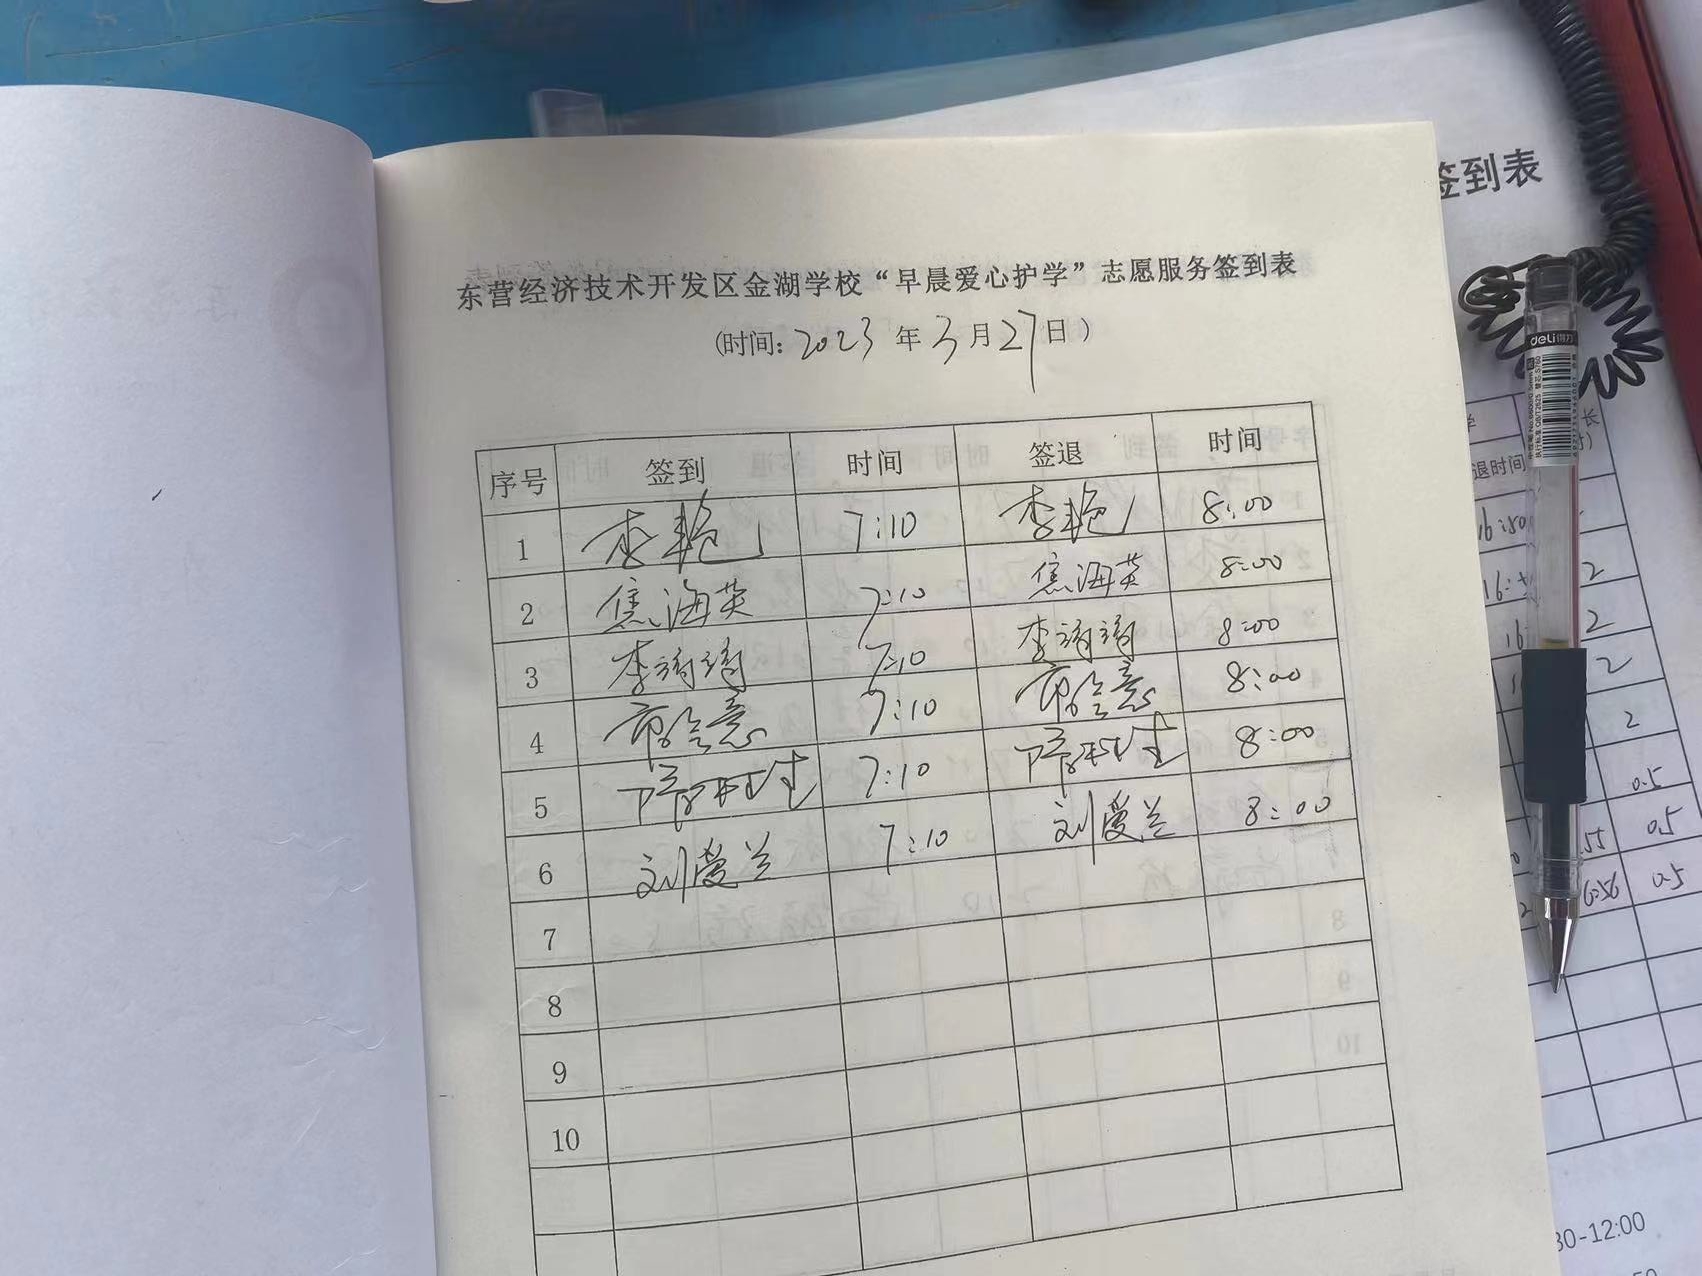 签到表
东营经济技术开发区金湖学校“早晨爱心护学”志愿服务签到表
(时间: 2023 年 3 月 27 日 )
序号 签到 时间 签退 时间
1 李艳 7:10 李艳 8:00
2 焦海英 7:10 焦海英 8:00
3 李 7:10 李 8:00
4 7:10 8:00
5 7:10 8:00
6 刘爱兰 7:10 刘爱兰 8:00
7
8
9
10
deli 得力
退时间
16:50
2
2
2
2
0.5
55 0.5
6:56 0.5
30-12:00